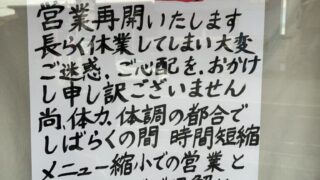 営業再開いたします
長らく休業してしまい大変
ご迷惑、ご心配を、おかけ
し申し訳ございません
尚、体力、体調の都合で
しばらくの間 時間短縮
メニュー縮小での営業と